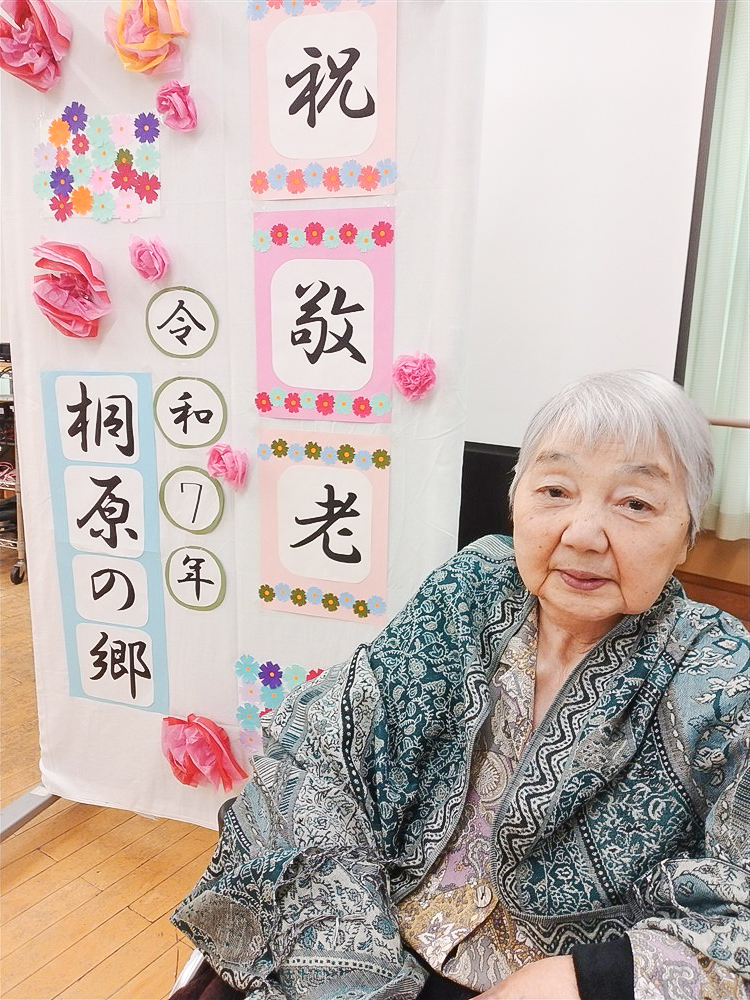 祝敬老
令和7年
桐原の郷